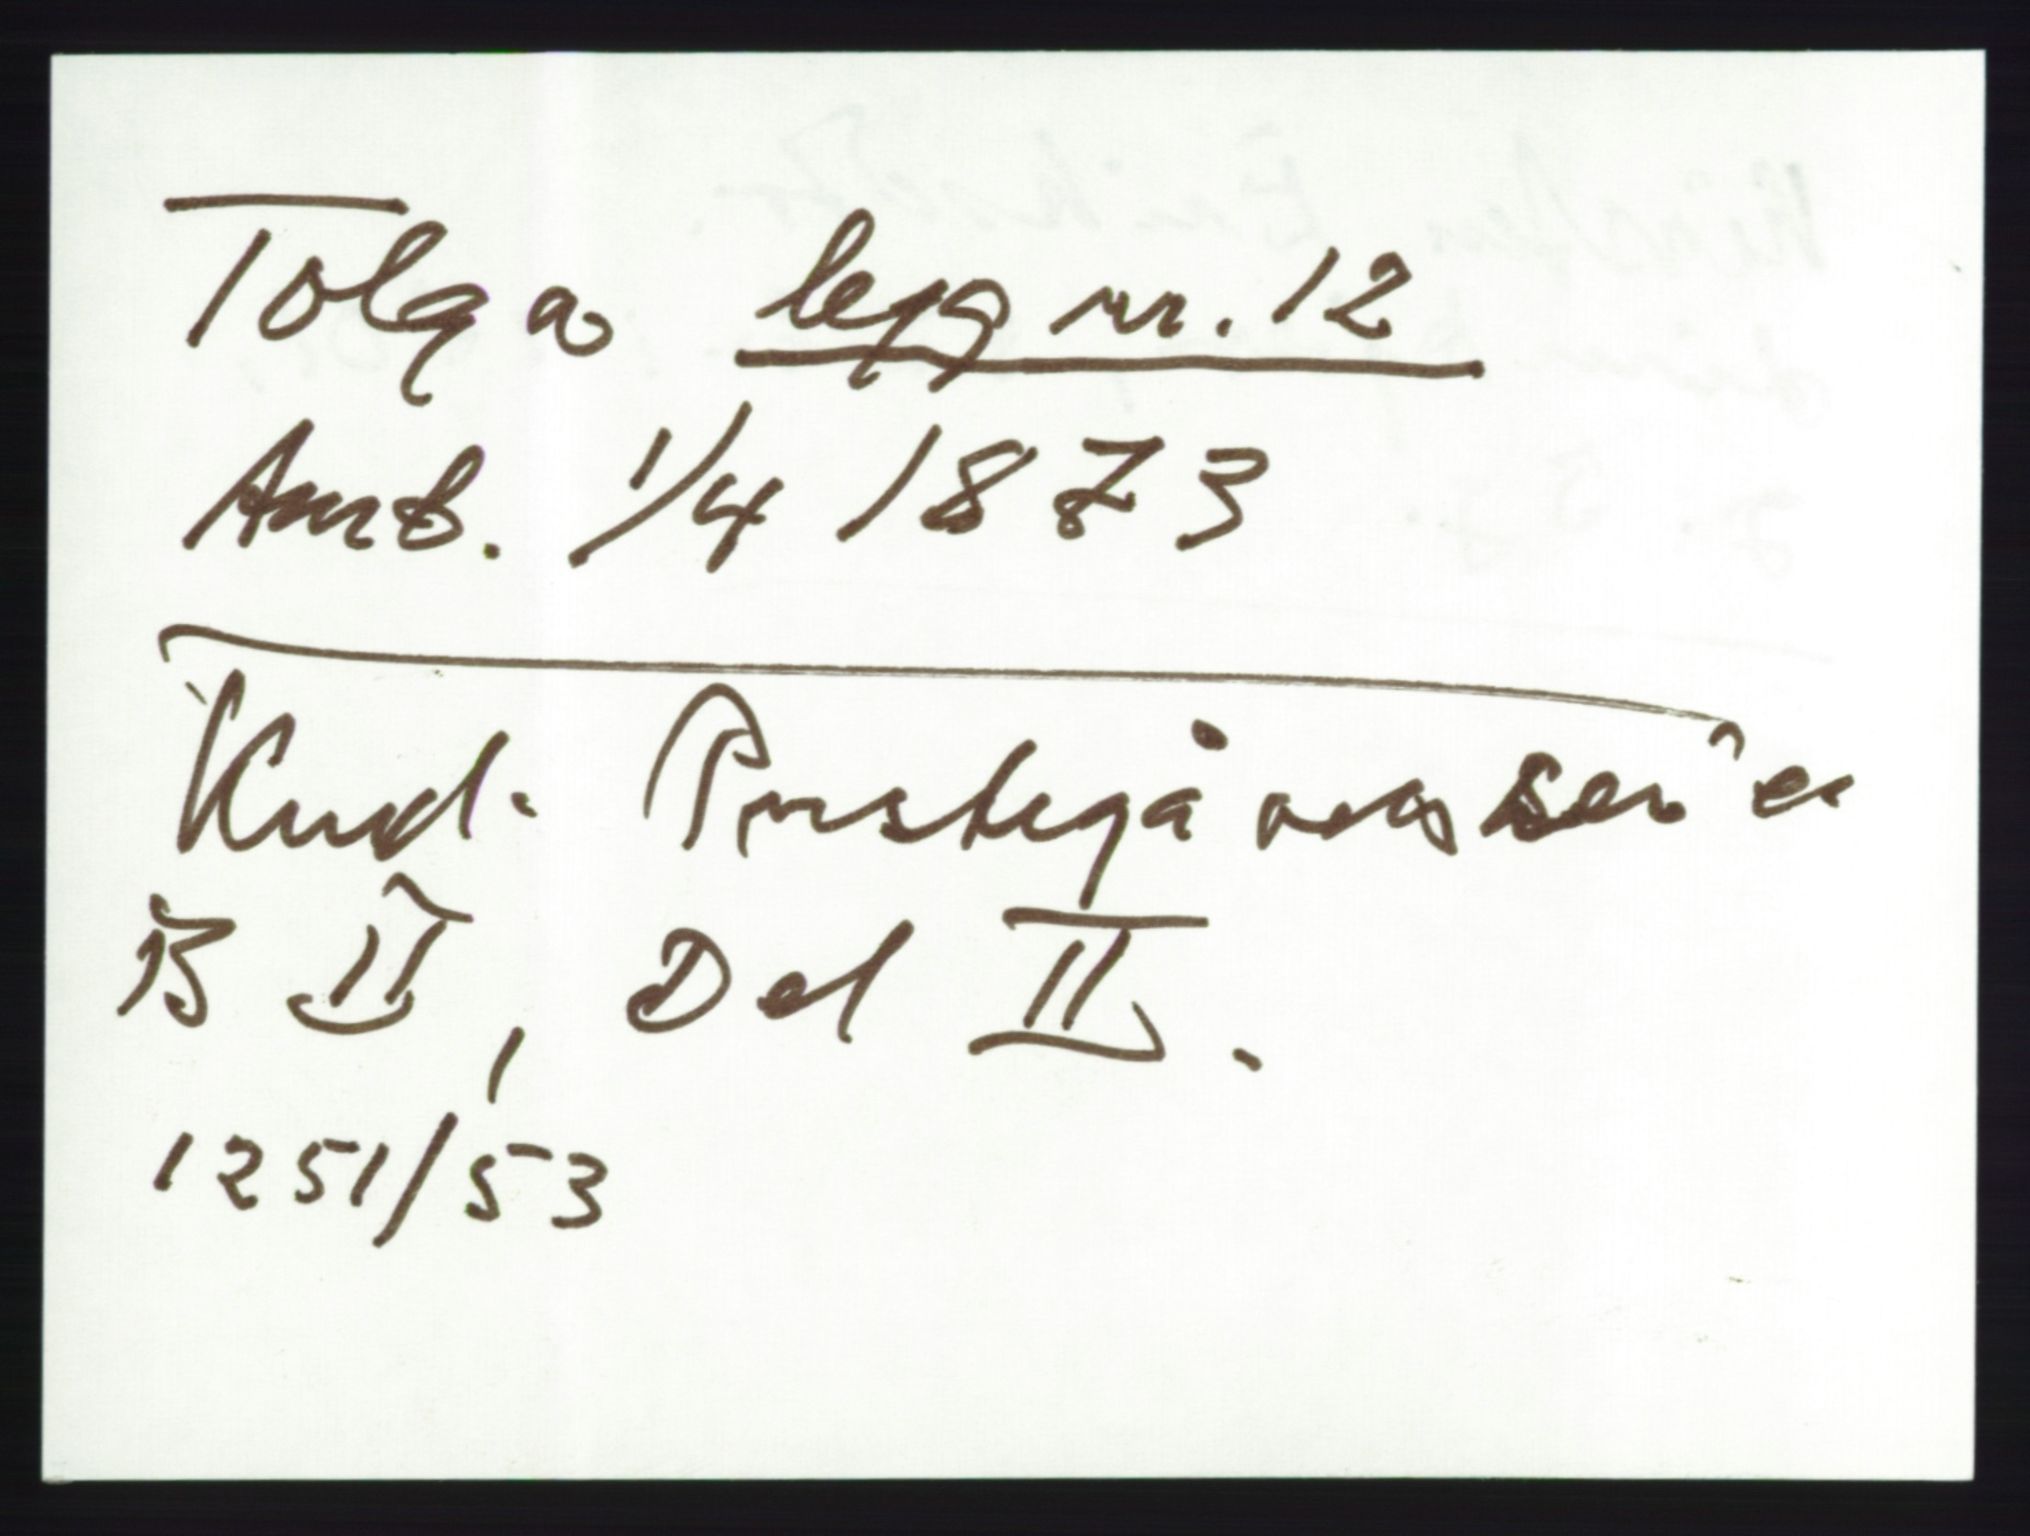 Tolga legg nr. 12
Amb. 1/4 1873
Kvd. Prestegårdsserien
B II, Del II.
1251/53